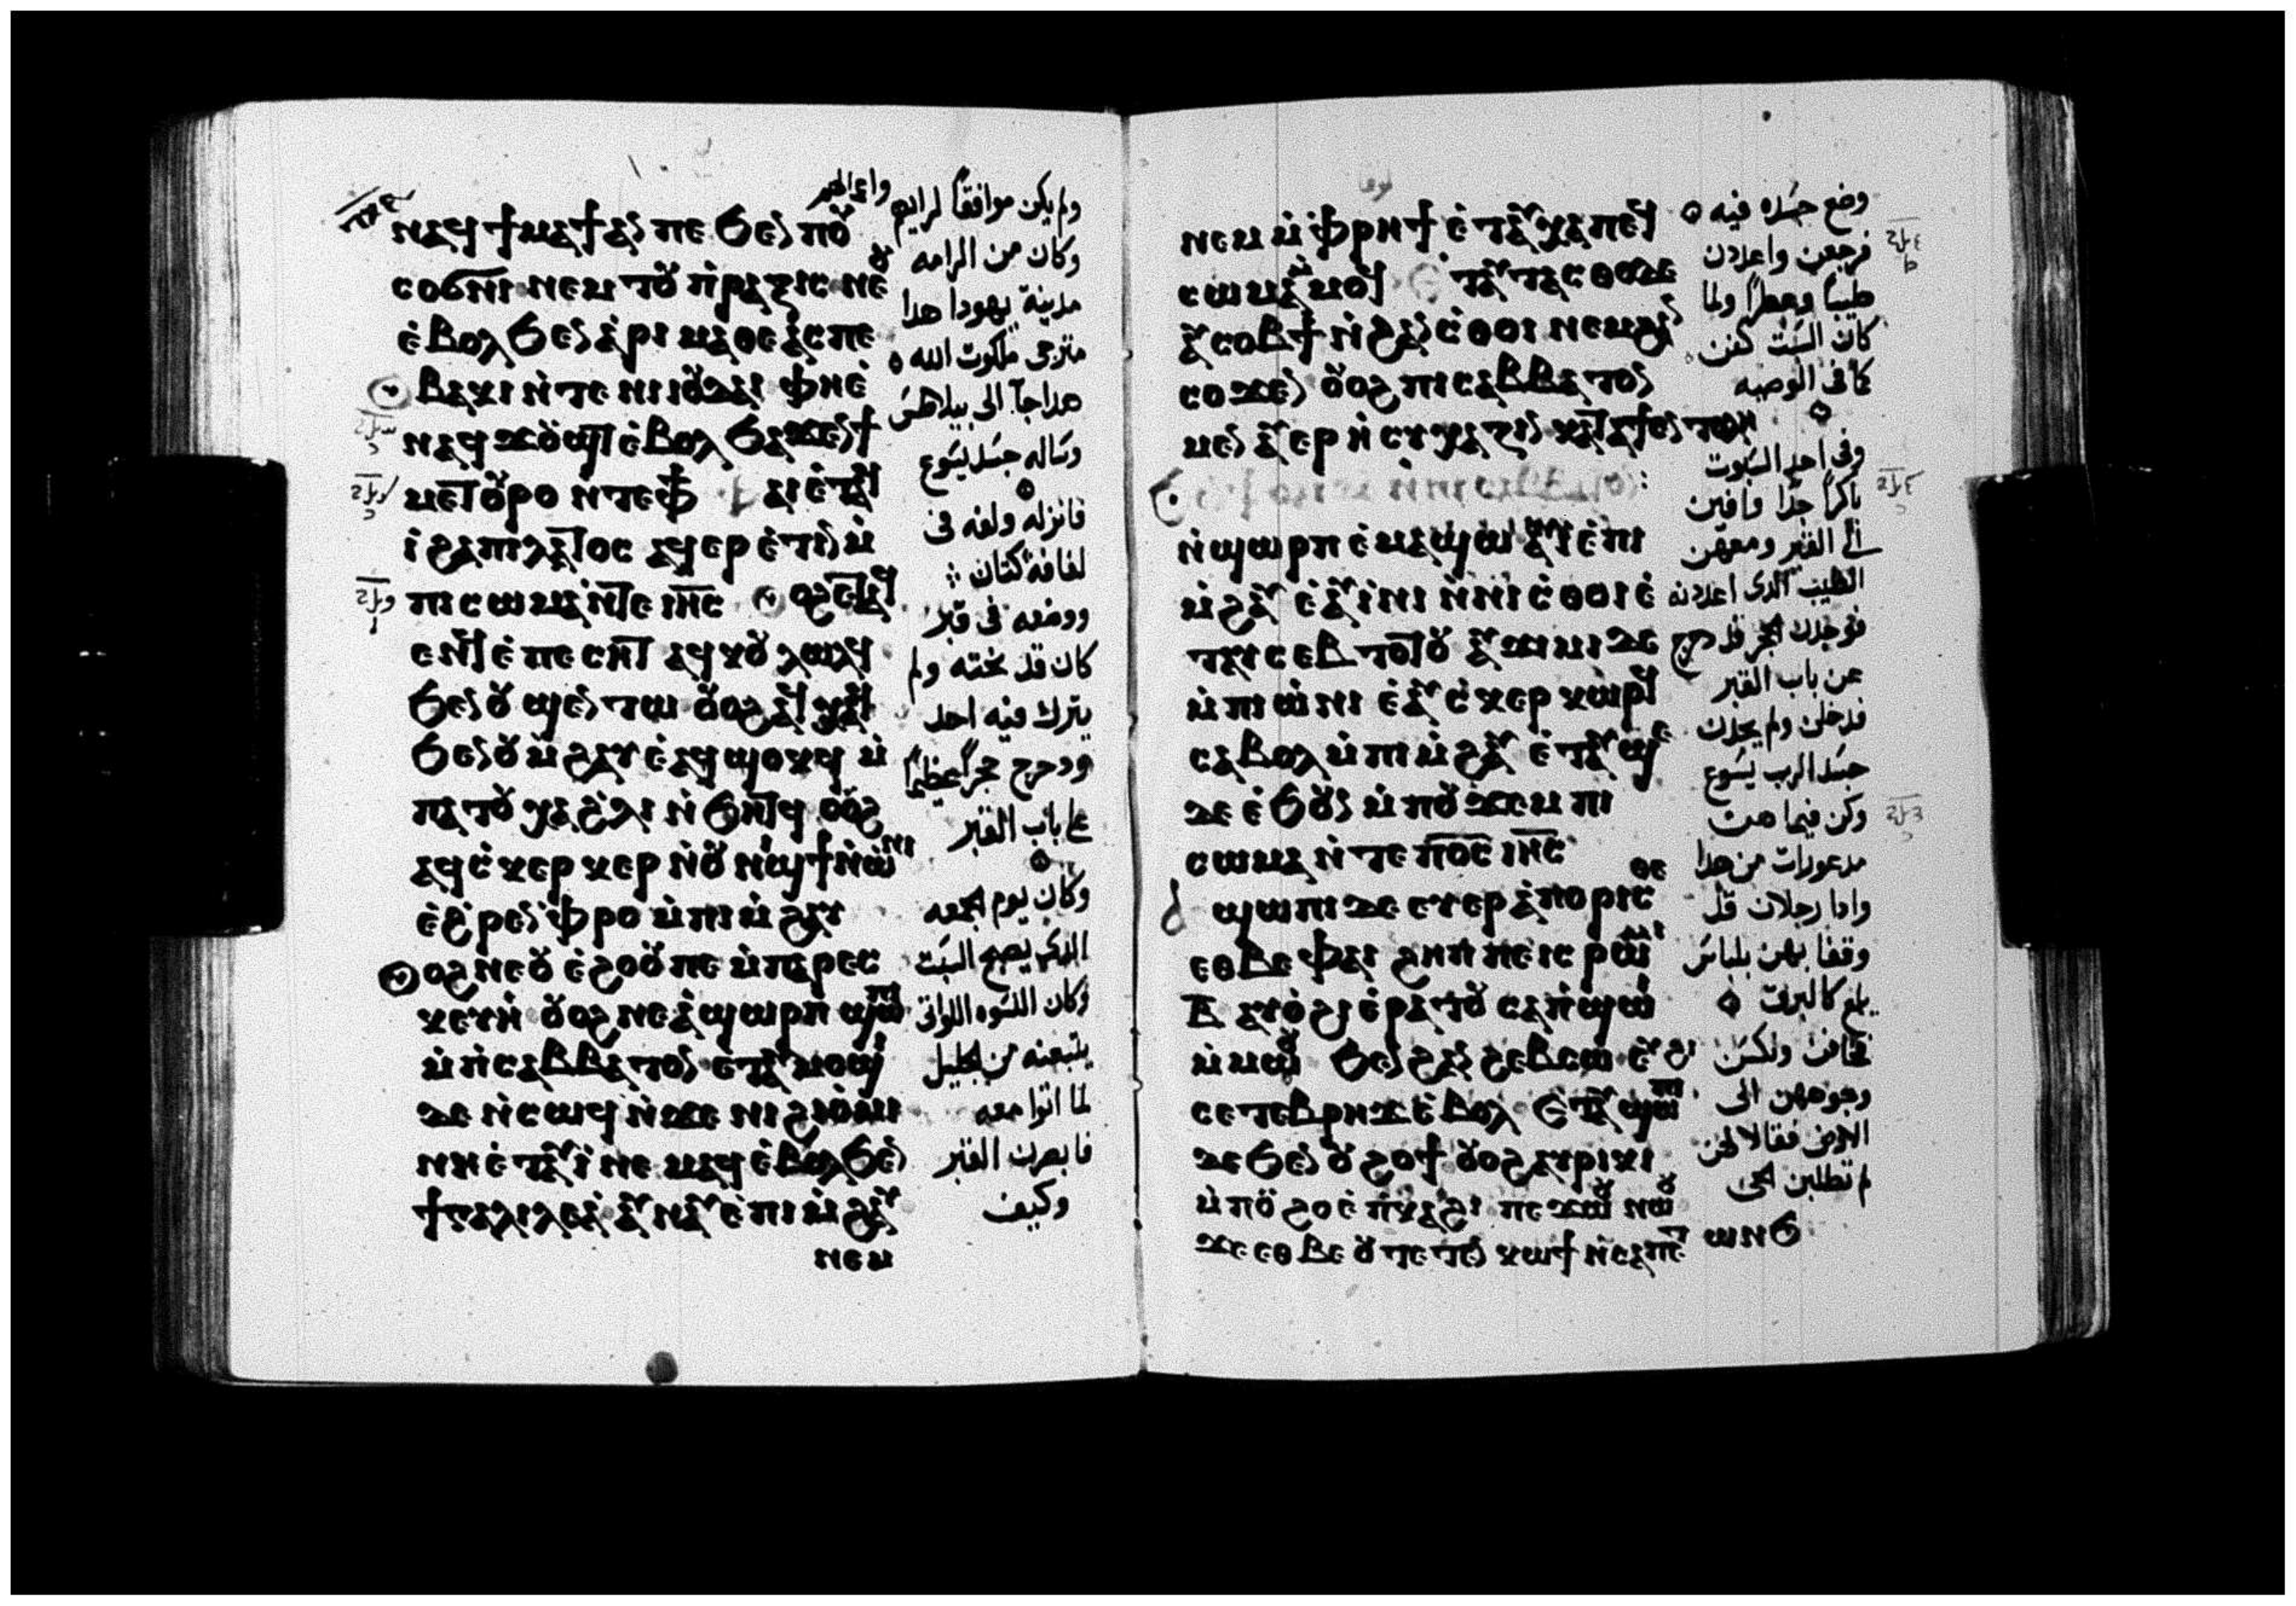 ⲛⲁϥϯⲙⲁϯ ⲁⲛ ⲡⲉ ϧⲉⲛ ⲡⲟⲩ
ⲥⲟϭⲛⲓ ⲛⲉⲙ ⲧⲟⲩ ⲡ̀ⲣⲁⲝⲓⲥ ⲛⲉⲟⲩ
ⲉ̀ⲃⲟⲗϧⲉⲛ ⲁ̀ⲣⲓⲙⲁⲑⲉⲁ̀ⲥ ⲡⲉ
ⲃⲁⲕⲓ ⲛ̀ⲧⲉ ⲛⲓⲓⲟⲩⲇⲁⲓ ⲫⲏⲉ̀
ⲛⲁϥϫⲟⲩϣⲧ ⲉ̀ⲃⲟⲗ ϧⲁϫⲉⲛϯ
ⲙⲉⲧⲟⲩⲣⲟ ⲛ̀ⲧⲉⲫϯ ⲫⲁⲓ ⲉ̀ⲧⲁϥ
ⲓ̀ ϩⲁⲡⲓⲗⲁⲧⲟⲥ ⲁϥⲉⲣⲉ̀ⲧⲓⲛ ⲙ̀
ⲡⲓⲥⲱⲙⲁ ⲛ̀ⲧⲉ ⲓⲏ̅ⲥ̅ ⲟⲩⲟϩ ⲉⲧⲁϥ
ⲉⲛϥ ⲉ̀ⲡⲉⲥⲏⲧ ⲁϥⲕⲟⲩⲗⲱⲗϥ
ϧⲉⲛⲟⲩ ϣⲉⲛⲧⲱ ⲟⲩⲟϩ ⲁϥⲭⲁϥ
ϧⲉⲛⲟⲩ ⲙ̀ϩⲁⲩ ⲉ̀ⲁϥϣⲟⲕϥ ⲙ̀
ⲡⲁⲧⲟⲩⲭⲁ ϩ̀ⲗⲓ ⲛ̀ϧⲏⲧϥ ⲟⲩⲟϩ
ⲁϥⲥ̀ⲕⲉⲣⲕⲉⲣ ⲛ̀ⲟⲩ ⲛⲓϣϯ ⲛ̀ⲱⲛⲓ
ⲉ̀ϩ̀ⲣⲉⲛ ⲫ̀ⲣⲟ ⲙ̀ⲡⲓⲙ̀ϩⲁⲩ
ⲟⲩⲟϩ ⲛⲉⲟⲩ ⲉ̀ϩⲟⲟⲩ ⲡⲉ ⲙ̀ⲡⲁⲣⲉⲥ
ⲕⲉⲩⲏ̀ ⲟⲩⲟϩ ⲛⲉⲁ̀ϣⲱⲣⲡ̀ ϣⲱⲡⲓ
ⲙ̀ⲡ̀ⲥⲁⲃⲃⲁⲧⲟⲛ ⲉⲧⲁⲩⲙⲟϣⲓ
ⲇⲉ ⲛ̀ⲥⲱϥ ⲛ̀ϫⲉ ⲛⲓϩⲓⲟ̀ⲙⲓ
ⲛⲏⲉ̀ⲧⲁⲩⲓ̀ ⲛⲉⲙⲁϥ ⲉ̀ⲃⲟⲗϧⲉⲛ
ϯⲅⲁⲗⲓⲗⲉⲁ̀ ⲁⲩⲛⲁⲩ ⲉ̀ⲡⲓⲙ̀ϩⲁⲩ
ⲛⲉⲙ
ولم يكن موافقًا لرايهم
وكان من الرامه
مدينة يهودا هدا
مترجى ملكوت الله
هدا جآ الى بيلاطس
وساله جسد يسوع
فانزله ولفه فى
لفافة كتان
ووضعه فى قبر
كان قد نحته ولم
يترك فيه احد
ودحرج حجرًا عظيمًا
على باب القبر
وكان يوم الجمعه
الدى يصبح السبت
وكان النسوه اللواتى
يتبعنه من الجليل
لما اتوا معه
فابصرن القبر
وكيف
ⲛⲉⲙ ⲙ̀ⲫ̀ⲣⲏϯ ⲉ̀ⲧⲁⲩⲭⲁⲡⲉϥ
ⲥⲱⲙⲁ ⲙ̀ⲙⲟϥ ⲉⲧⲁⲩⲧⲁⲥⲑⲟ ⲇⲉ
ⲁⲩⲥⲟⲃϯ ⲛ̀ϩⲁⲛⲥ̀ⲑⲟⲓ ⲛⲉⲙϩⲁⲛ
ⲥⲟϫⲉⲛ ⲟⲩⲟϩ ⲡⲓⲥⲁⲃⲃⲁⲧⲟⲛ
ⲙⲉⲛ ⲁⲩⲉⲣ ⲏ̀ⲥⲩⲭⲁⲍⲓⲛ ⲕⲁⲧⲁϯⲉⲛⲧⲟⲗⲏ
ⲛ̀ϣⲱⲣⲡ ⲉⲙⲁϣⲱ ⲁⲩⲓ̀ ⲉ̀ⲡⲓ
ⲙ̀ϩⲁⲩ ⲉ̀ⲁⲩⲓ̀ⲛⲓ ⲛ̀ⲛⲓⲥ̀ⲑⲟⲓ ⲉ̀
ⲧⲁⲩⲥⲉⲃⲧⲱⲧⲟⲩ ⲁⲩϫⲓⲙⲓ ⲇⲉ
ⲙ̀ⲡⲓⲱ̀ⲛⲓ ⲉ̀ⲁⲩⲥ̀ⲕⲉⲣⲕⲱⲣϥ
ⲥⲁⲃⲟⲗ ⲙ̀ⲡⲓⲙ̀ϩⲁⲩ ⲉ̀ⲧⲁⲩϣⲉ
ⲇⲉ ⲉ̀ϧⲟⲩⲛ ⲙ̀ⲡⲟⲩϫⲉⲙ ⲡⲓ
ⲥⲱⲙⲁ ⲛ̀ⲧⲉ ⲡ̅ⲟ̅ⲥ̅ ⲓⲏ̅ⲥ̅
ϣⲱⲡⲓ ⲇⲉ ⲉⲩⲉⲣⲁ̀ⲡⲟⲣⲓⲥⲑⲉ
ⲉⲑⲃⲉ ⲫⲁⲓ ϩⲏⲡⲡⲉ ⲓⲥ ⲣⲱⲙⲓ
ⲃ̅ ⲁⲩⲟ̀ϩⲓ ⲉ̀ⲣⲁⲧⲟⲩ ⲥⲁⲡ̀ϣⲱⲓ
ⲙ̀ⲙⲱⲟⲩ ϧⲉⲛ ϩⲁⲛ ϩⲉⲃⲥⲱ ⲉⲩϩⲓ
ⲥⲉⲧⲉⲃⲣⲏϫ ⲉ̀ⲃⲟⲗ ⲉⲧⲁⲩϣⲱⲡⲓ
ⲇⲉ ϧⲉⲛ ⲟⲩϩⲟϯ ⲟⲩⲟϩ ⲁⲩⲣⲓⲕⲓ
ⲙ̀ⲡⲟⲩϩⲟ ⲉ̀ⲡ̀ⲕⲁϩⲓ ⲡⲉϫⲱⲟⲩ ⲛⲱⲟⲩ
ϫⲉ ⲉⲑⲃⲉⲟⲩ ⲧⲉⲧⲉⲛ ⲕⲱϯ ⲛ̀ⲥⲁ ⲡⲉⲧ
ⲱⲛϧ
وضع جسده فيه
فرجعن واعددن
طيبًا وعطرًا ولما
كان السبت كففن
كما فى الوصيه
وفى احد السبوت
باكرًا جدًا وافين
الى القبر ومعهن
الطيب الدى اعددنه
فوجدن الحجر قد دحرج
عن باب القبر
فدخلن ولم يجدن
جسد الرب يسوع
وكن فيما هن
مدعورات من هدا
وادا رجلان قد
وقفا بهن بلباس
يلمع كالبرق
فخافن ونكسن
وجوههن الى
الارض فقالا لهن
لم تطلبن الحى